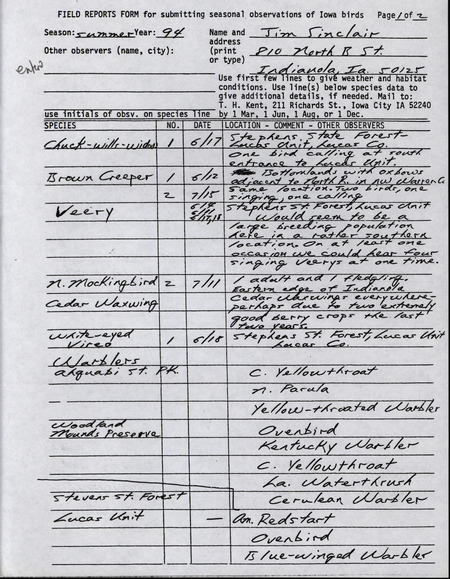 FIELD REPORTS FORM for submitting seasonal observations of Iowa birds Page 1 of 2
Season: summer Year: 94 Name and Jim Sinclair
address
Other observers (name, city): (print 810 North B St.
or type)
Indianola, Ia. 50125
Use first few lines to give weather and habitat
conditions. Use line(s) below species data to
give additional details, if needed. Mail to:
T. H. Kent, 211 Richards St., Iowa City IA 52240
use initials of obsv. on species line by 1 Mar, 1 Jun, 1 Aug, or 1 Dec.
SPECIES NO. DATE LOCATION - COMMENT - OTHER OBSERVERS
Stephens State Forest-
Chuck-wills-widow 1 6/17 Lucas Unit, Lucas Co.
One bird calling at south
entrance to Lucas Unit.
Brown Creeper 1 6/12 Bottomlands with oxbows
adjacent to North R. in NW Warren Co
2 7/15 Same location. Two birds, one
singing, one calling
Veery Stephens St. Forest, Lucas Unit
Would seem to be a
large breeding population
here in a rather southern
location. On at least one
occasion we could hear four
singing Veerys at one time.
N. Mockingbird 2 7/11 1 adult and 1 fledgling.
Eastern edge of Indianola
Cedar Waxwing Cedar Waxwings everywhere-
perhaps due to two extremely
good berry crops the last
two years.
White-eyed
Vireo 1 6/18 Stephens St. Forest, Lucas Unit
Lucas Co.
Warblers
Ahquabi St. PK. C. Yellowthroat
N. Parula
Yellow-throated Warbler
Woodland
Mounds Preserve Ovenbird
Kentucky Warbler
C. Yellowthroat
La. Waterthrush
Stevens St. Forest Cerulean Warbler
Lucas Unit — Am. Redstart
Ovenbird
Blue-winged Warbler